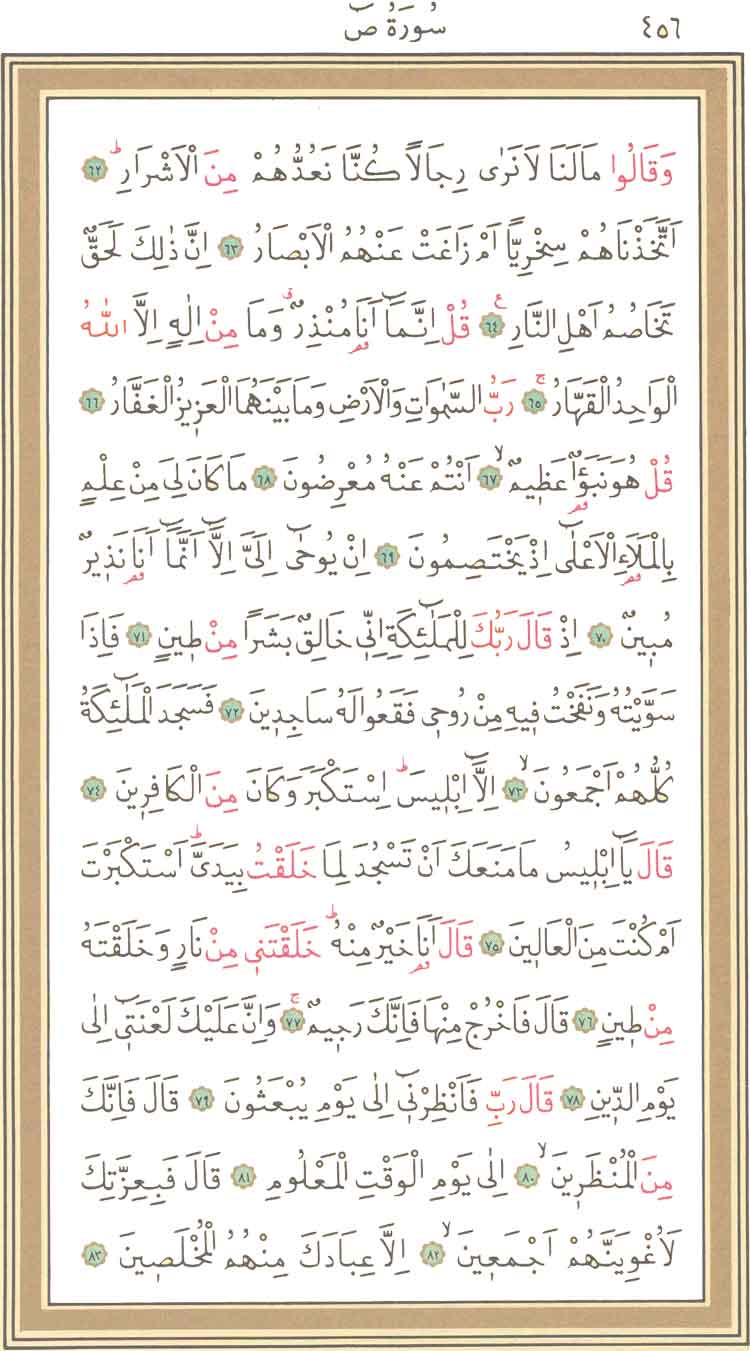 ٤٥٦ سُورَةُ صٓ
وَقَالُوا مَالَنَا لَا نَرٰى رِجَالًا كُنَّا نَعُدُّهُمْ مِنَ الْاَشْرَارِۜ ﴿٦٢﴾
اَتَّخَذْنَاهُمْ سِخْرِيًّا اَمْ زَاغَتْ عَنْهُمُ الْاَبْصَارُ ﴿٦٣﴾ اِنَّ ذٰلِكَ لَحَقٌّ
تَخَاصُمُ اَهْلِ النَّارِ۟ ﴿٦٤﴾ قُلْ اِنَّمَٓا اَنَا۬ مُنْذِرٌۗ وَمَا مِنْ اِلٰهٍ اِلَّا اللّٰهُ
الْوَاحِدُ الْقَهَّارُۚ ﴿٦٥﴾ رَبُّ السَّمٰوَاتِ وَالْاَرْضِ وَمَا بَيْنَهُمَا الْعَز۪يزُ الْغَفَّارُ ﴿٦٦﴾
قُلْ هُوَ نَبَؤٌ۬ا عَظ۪يمٌۙ ﴿٦٧﴾ اَنْتُمْ عَنْهُ مُعْرِضُونَ ﴿٦٨﴾ مَا كَانَ لِيَ مِنْ عِلْمٍ
بِالْمَلَأِ۬ الْاَعْلٰٓى اِذْ يَخْتَصِمُونَ ﴿٦٩﴾ اِنْ يُوحٰٓى اِلَيَّ اِلَّٓا اَنَّمَٓا اَنَا۬ نَذ۪يرٌ
مُب۪ينٌ ﴿٧٠﴾ اِذْ قَالَ رَبُّكَ لِلْمَلٰٓئِكَةِ اِنّ۪ي خَالِقٌ بَشَرًا مِنْ ط۪ينٍ ﴿٧١﴾ فَاِذَا
سَوَّيْتُهُ وَنَفَخْتُ ف۪يهِ مِنْ رُوح۪ي فَقَعُوا لَهُ سَاجِد۪ينَ ﴿٧٢﴾ فَسَجَدَ الْمَلٰٓئِكَةُ
كُلُّهُمْ اَجْمَعُونَۙ ﴿٧٣﴾ اِلَّٓا اِبْل۪يسَۜ اِسْتَكْبَرَ وَكَانَ مِنَ الْكَافِر۪ينَ ﴿٧٤﴾
قَالَ يَٓا اِبْل۪يسُ مَا مَنَعَكَ اَنْ تَسْجُدَ لِمَا خَلَقْتُ بِيَدَيَّۜ اَسْتَكْبَرْتَ
اَمْ كُنْتَ مِنَ الْعَال۪ينَ ﴿٧٥﴾ قَالَ اَنَا۬ خَيْرٌ مِنْهُۜ خَلَقْتَن۪ي مِنْ نَارٍ وَخَلَقْتَهُ
مِنْ ط۪ينٍ ﴿٧٦﴾ قَالَ فَاخْرُجْ مِنْهَا فَاِنَّكَ رَج۪يمٌۚ ﴿٧٧﴾ وَاِنَّ عَلَيْكَ لَعْنَت۪ٓي اِلٰى
يَوْمِ الدّ۪ينِ ﴿٧٨﴾ قَالَ رَبِّ فَاَنْظِرْن۪ٓي اِلٰى يَوْمِ يُبْعَثُونَ ﴿٧٩﴾ قَالَ فَاِنَّكَ
مِنَ الْمُنْظَر۪ينَۙ ﴿٨٠﴾ اِلٰى يَوْمِ الْوَقْتِ الْمَعْلُومِ ﴿٨١﴾ قَالَ فَبِعِزَّتِكَ
لَاُغْوِيَنَّهُمْ اَجْمَع۪ينَۙ ﴿٨٢﴾ اِلَّا عِبَادَكَ مِنْهُمُ الْمُخْلَص۪ينَ ﴿٨٣﴾